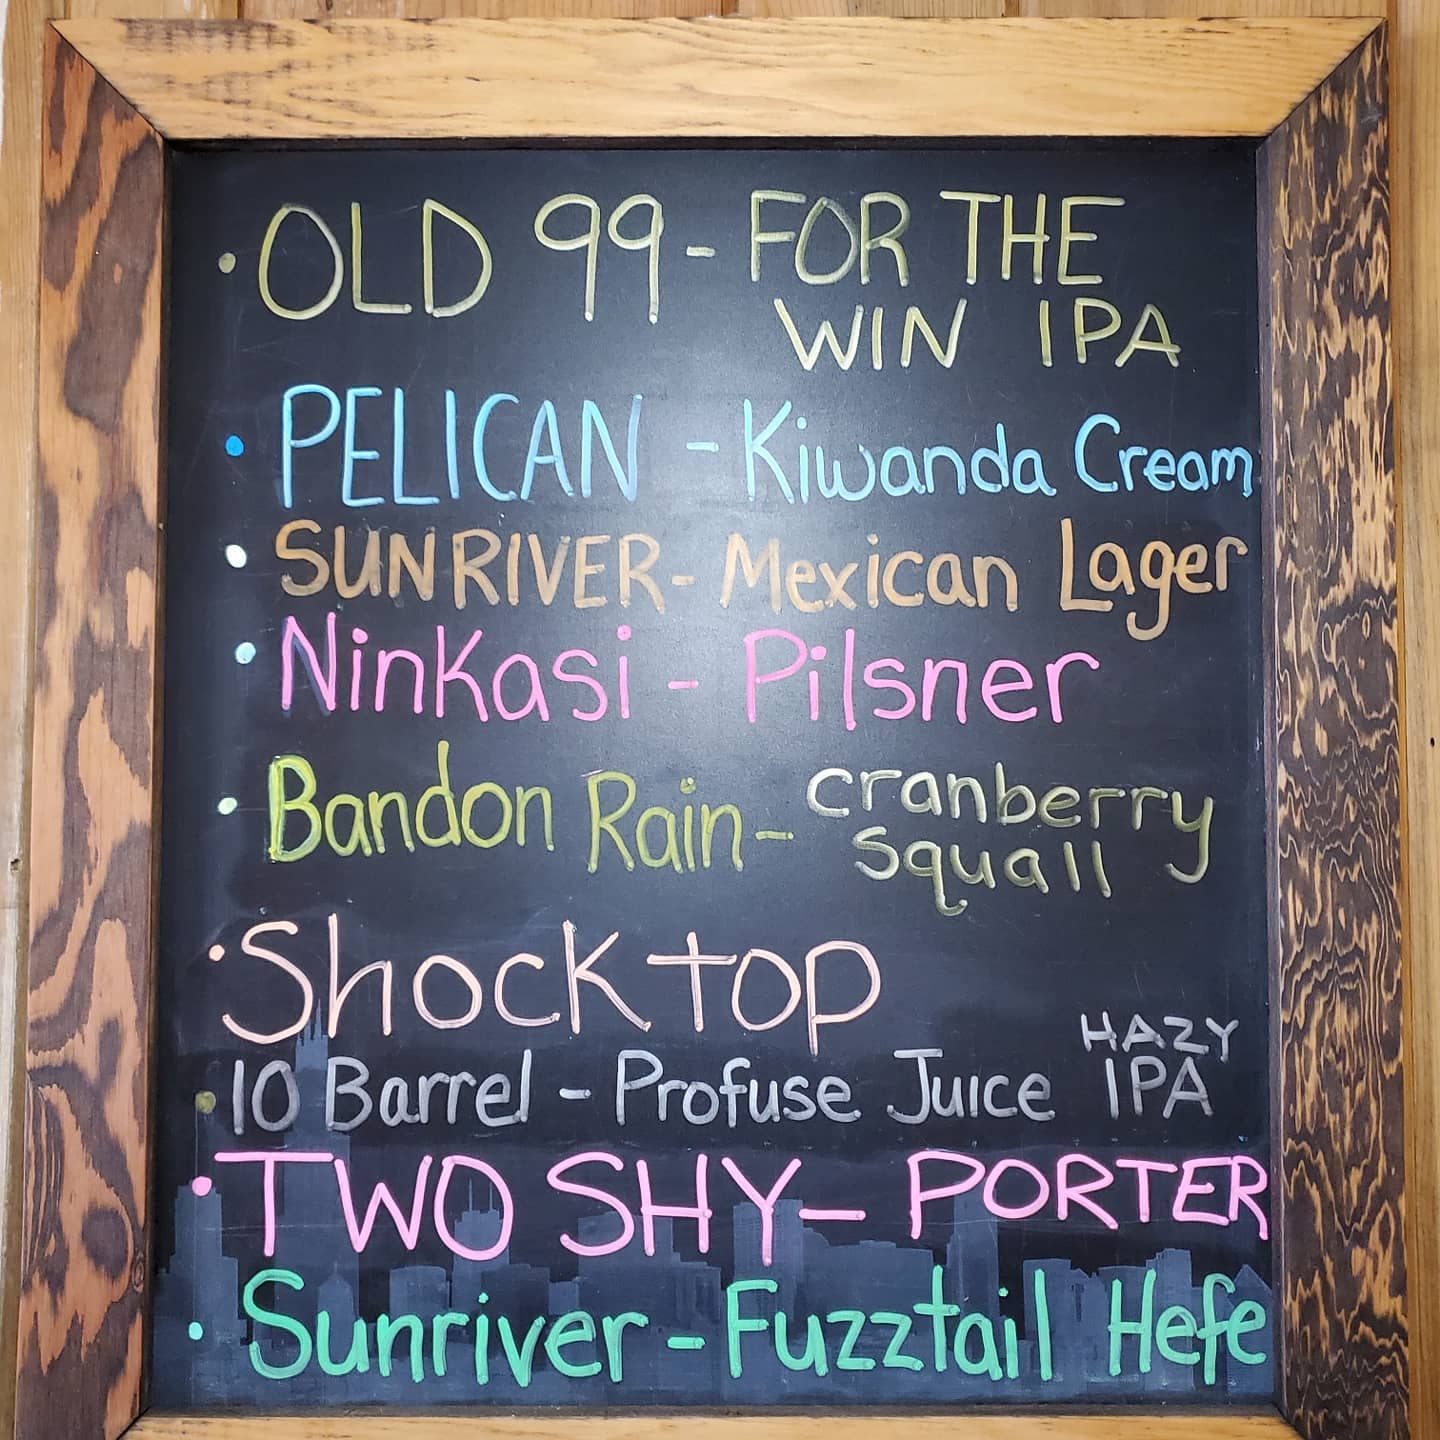 • OLD 99 - FOR THE
WIN IPA
• PELICAN - Kiwanda Cream
• SUNRIVER - Mexican Lager
• NinKasi - Pilsner
• Bandon Rain - cranberry
squall
• Shock top
• 10 Barrel - Profuse Juice HAZY
IPA
• TWO SHY - PORTER
• Sunriver - Fuzztail Hefe